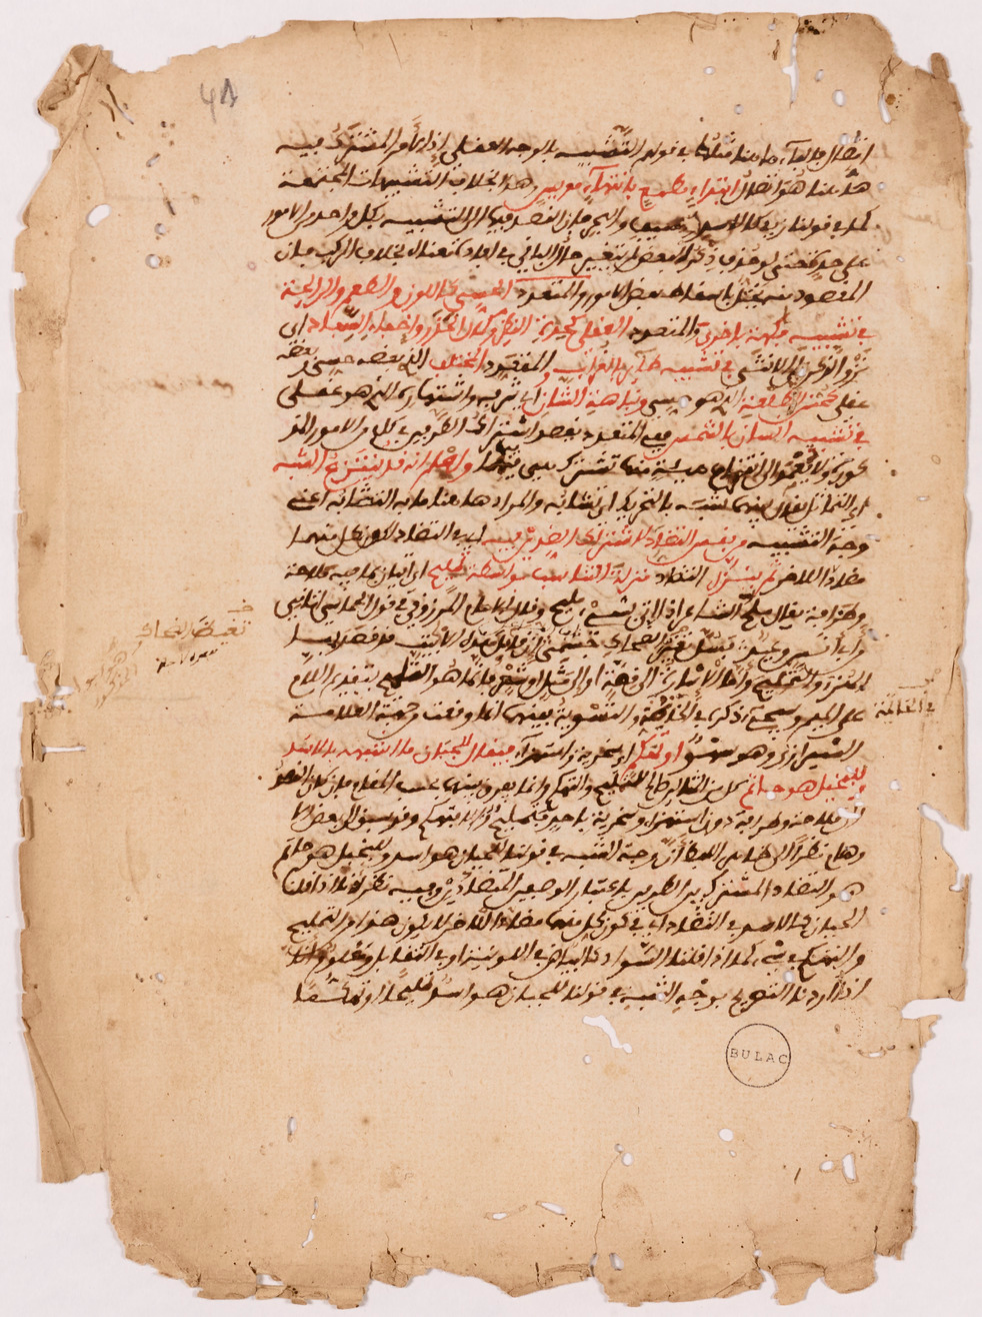 انتظار جاليا ما مثلنا في قولهم التشبيه بالوجه العقلي اذ الامر المشترك فيه
ههنا هو اتصال ابتداء مطمع بانتهاء مويس وهذا بخلاف التشبيهات المجتمعة
كما في قولنا زيد كالاسد والسيف والبحر فان القصد فيها الى التشبيه بكل واحد من الامور
على حدة حتى لو حذف ذكر البعض لم يتغير حال الباقي في افادة معناه بخلاف المركب فان
المقصود منه يختل باسقاط بعض الامور والمتعدد الحسي كاللون والطعم والرايحة
في تشبيه فاكهة باخرى والمتعدد العقلي كحدة النظر وكمال الحذر واخفاء السفاد اي
نزو الذكر على الانثى في تشبيه طاير بالغراب والمتعدد المختلف الذي بعضه حسي وبعضه
عقلي كحسن الطلعة الذي هو حسي ونباهة الشان اي شرفه واشتهاره الذي هو عقلي
في تشبيه انسان بالشمس ففي المتعدد يقصد اشتراك الطرفين في كل من الامور المذ
كورة ولا يعمد الى انتزاع هيئة منها تشترك هي فيها واعلم انه قد ينتزع الشبه
اي التماثل يقال بينهما شبه بالتحريك اي تشابه والمراد هاهنا ما به التشابه اعني
وجه التشبيه من نفس التضاد لاشتراك الضدين فيه اي في التضاد لكون كل منهما
مضادا للاخر ثم ينزل التضاد منزلة التناسب بواسطة تمليح اي اتيان بما فيه ملاحة
وظرافة يقال ملح الشاعر اذا اتى بشيء مليح وقال الامام المرزوقي في قول الحماسي اتاني
من ابي انس وعيد فسل تغيظ الضحاك جسمي ان قايل هذه الابيات قد قصد بها
الهزء والتمليح واما الاشارة الى قصة او الى مثل او شعر فانما هو التلميح بتقديم اللام
على الميم وسيجيء ذكره في الخاتمة والتسوية بينهما انما وقعت من جهة العلامة
الشيرازي وهو سهو او تهكم اي سخرية واستهزاء فيقال للجبان ما اشبهه بالاسد
وللبخيل هو حاتم كل من المثالين صالح للتمليح والتهكم وانما يفرق بينهما بحسب المقام فان كان القصد
الى ملاحة وظرافة دون استهزاء وسخرية باحد فتمليح والا فتهكم وقد سبق الى بعض الا
وهام نظرا الى ظاهر اللفظ ان وجه الشبه في قولنا للجبان هو اسد وللبخيل هو حاتم
هو التضاد المشترك بين الطرفين باعتبار الوصفين المتضادين وفيه نظر لانا اذا قلنا
الجبان كالاسد في التضاد اي في كون كل منهما مضادا للاخر لا يكون هذا من التمليح
والتهكم في شيء كما اذا قلنا السواد كالبياض في اللونية او في التقابل ومعلوم انا
اذا اردنا التصريح بوجه الشبه في قولنا للجبان هو اسد تمليحا او تهكما
تغيظ الضحاك
في الخاتمة
BULAC